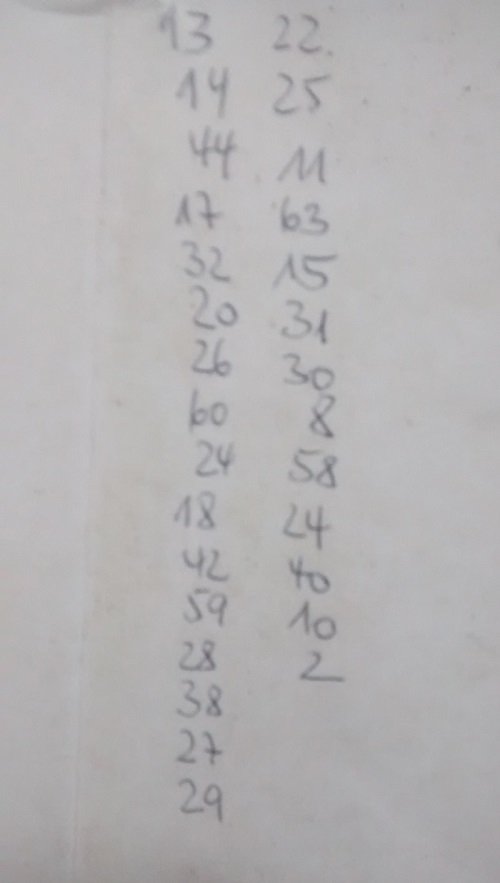 13 22
14 25
44 11
17 63
32 15
20 31
26 30
60 8
24 58
18 24
42 40
59 10
28 2
38
27
29